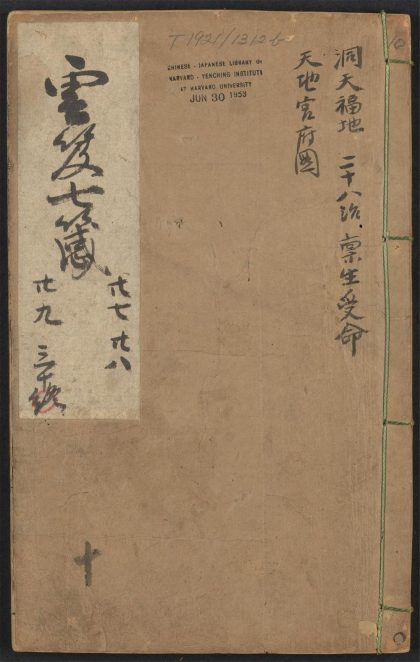 T 1921/1312b
10
CHINESE - JAPANESE LIBRARY OF
HARVARD - YENCHING INSTITUTE
AT HARVARD UNIVERSITY
JUN 30 1953
洞天福地 二十八治 稟生受命
天地宮府圖
雲笈七籤
廿七 廿八
廿九 三十
十